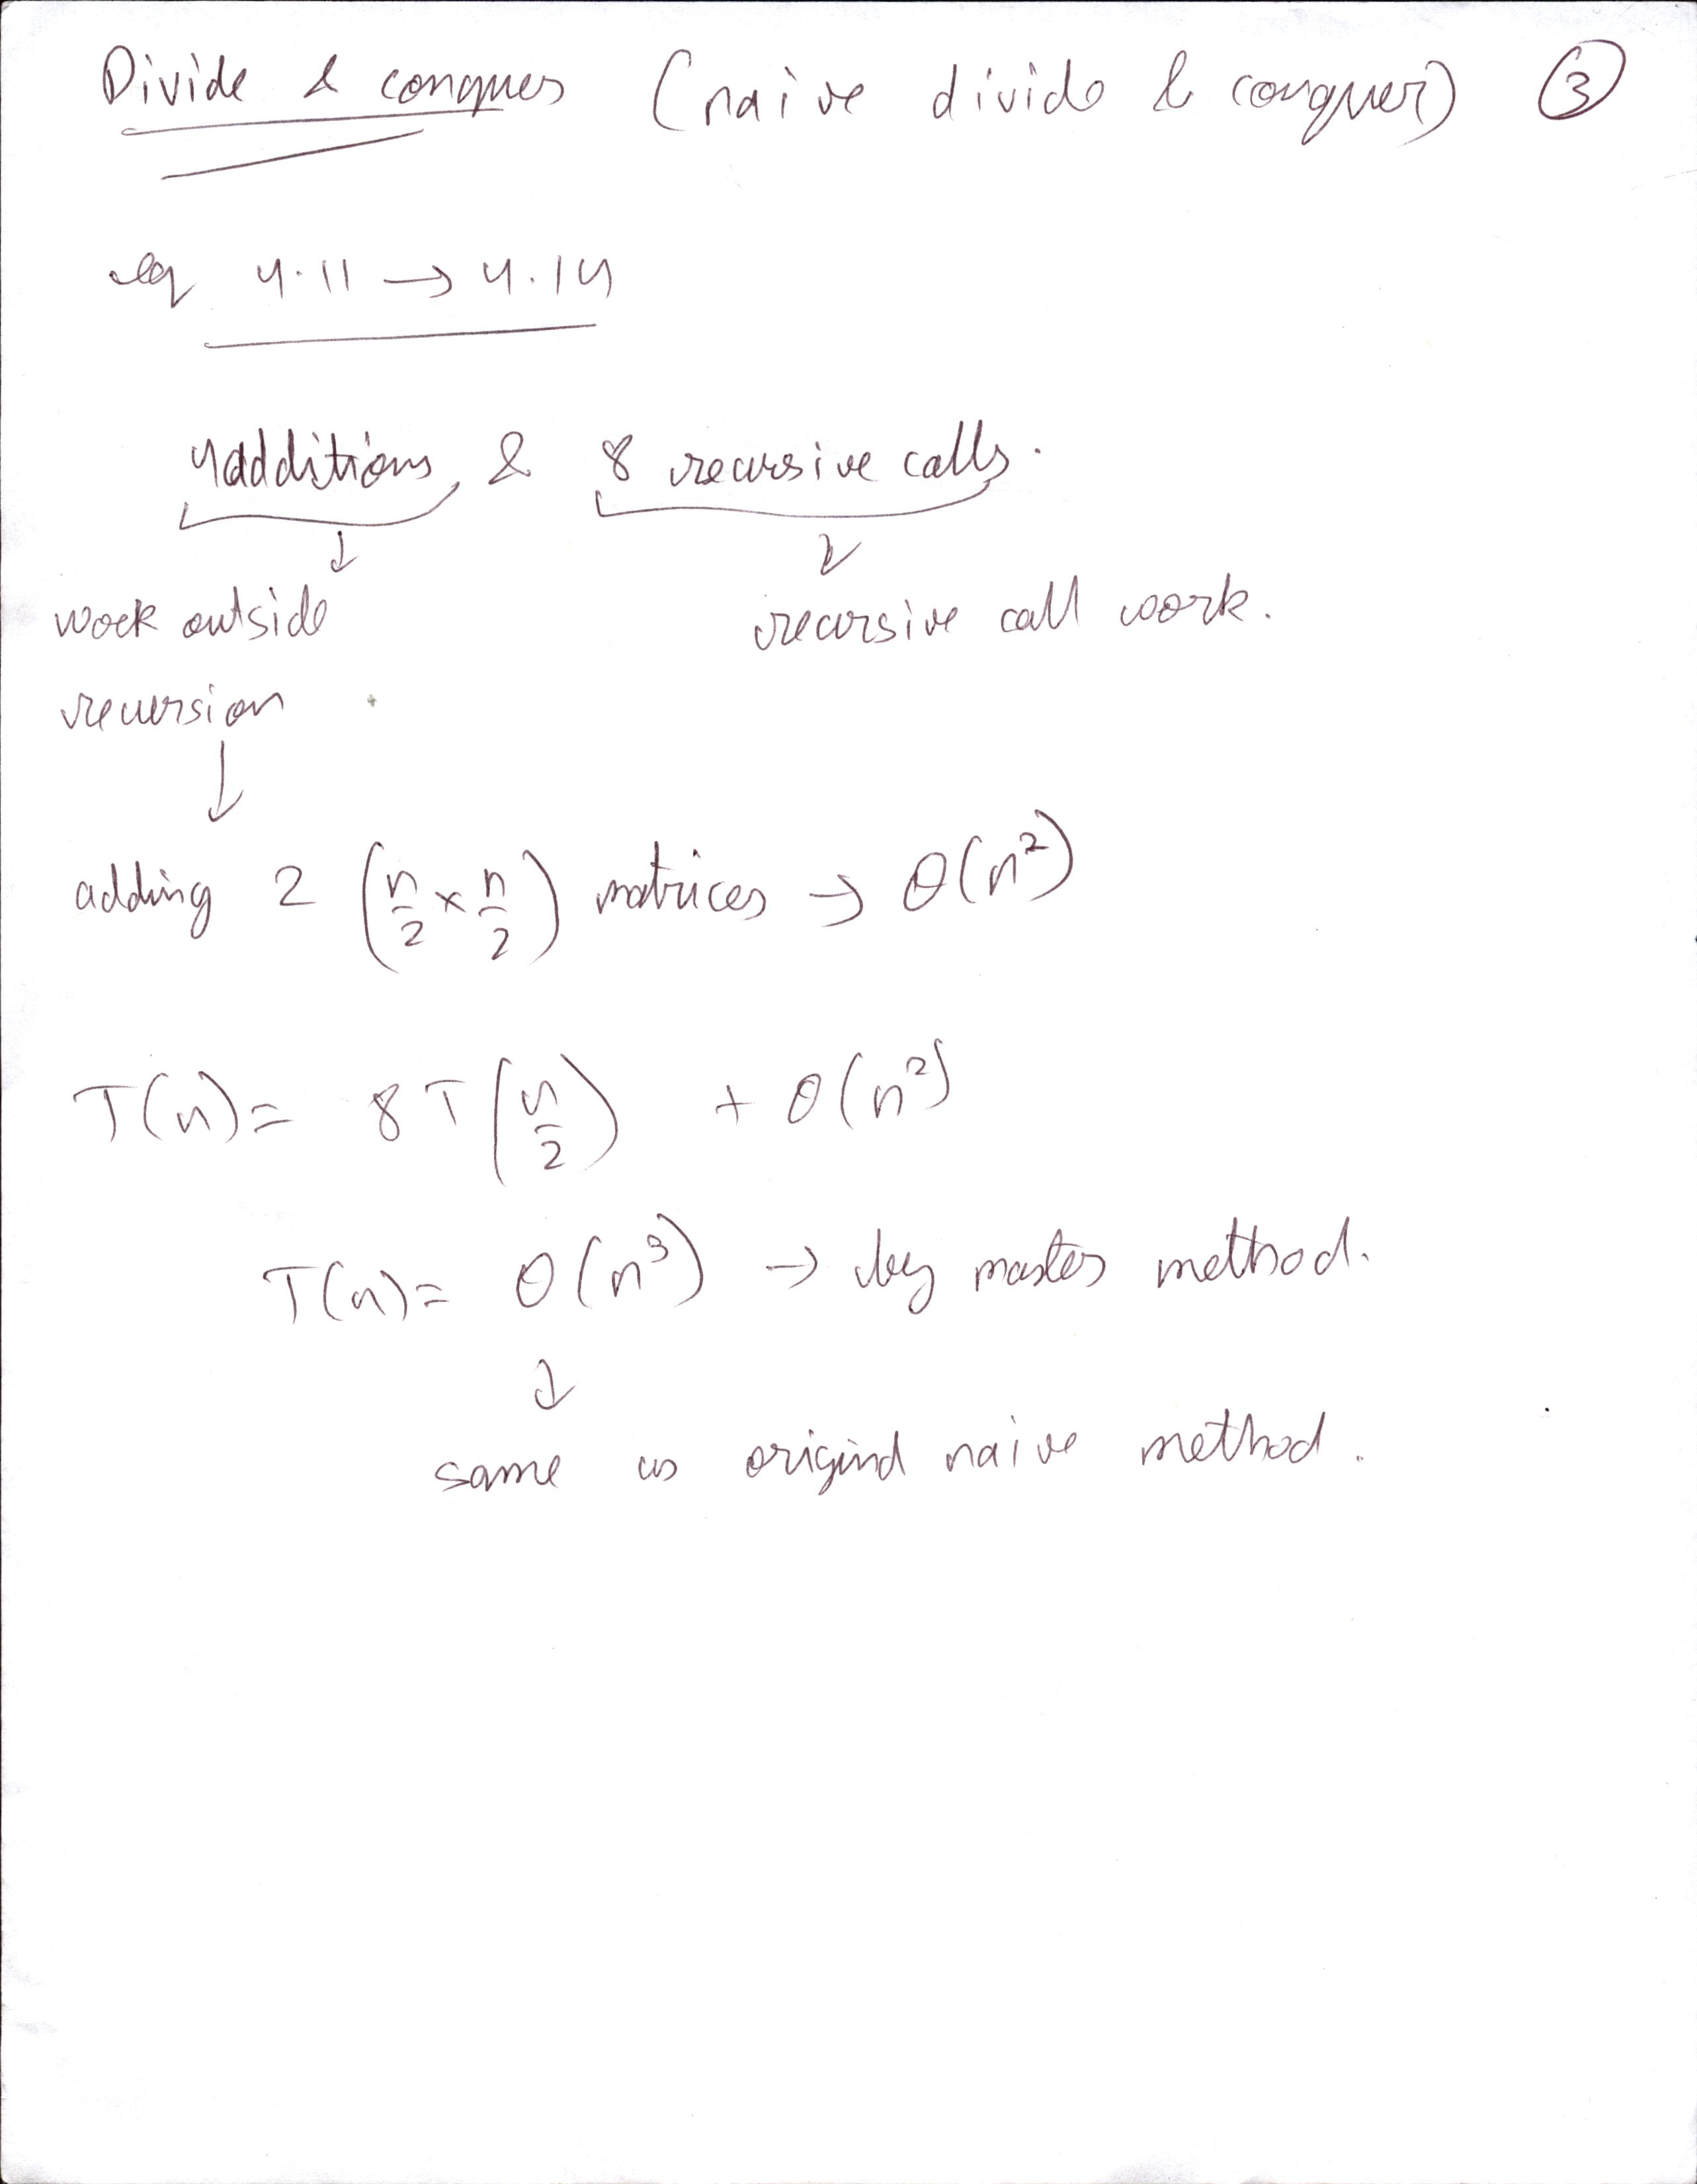 Divide & conquer (naive divide & conquer) ③
eq 4.11 → 4.14
4 additions & 8 recursive calls.
↓ ↓
work outside recursive call work.
recursion
↓
adding 2 (n/2 × n/2) matrices → θ(n²)
T(n) = 8T(n/2) + θ(n²)
T(n) = θ(n³) → by master method.
↓
same as original naive method.